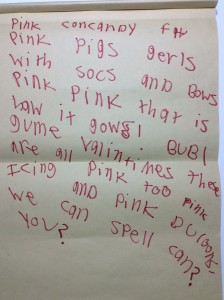 PINK concandy for
PINK Pigs gerls
with socs and Bows
PINK PINK that is
haw it gows!
gume BUBl
are all Valintimes there
Icing PINK too PINK
we and PINK Duloons
can spell can?
YOU?